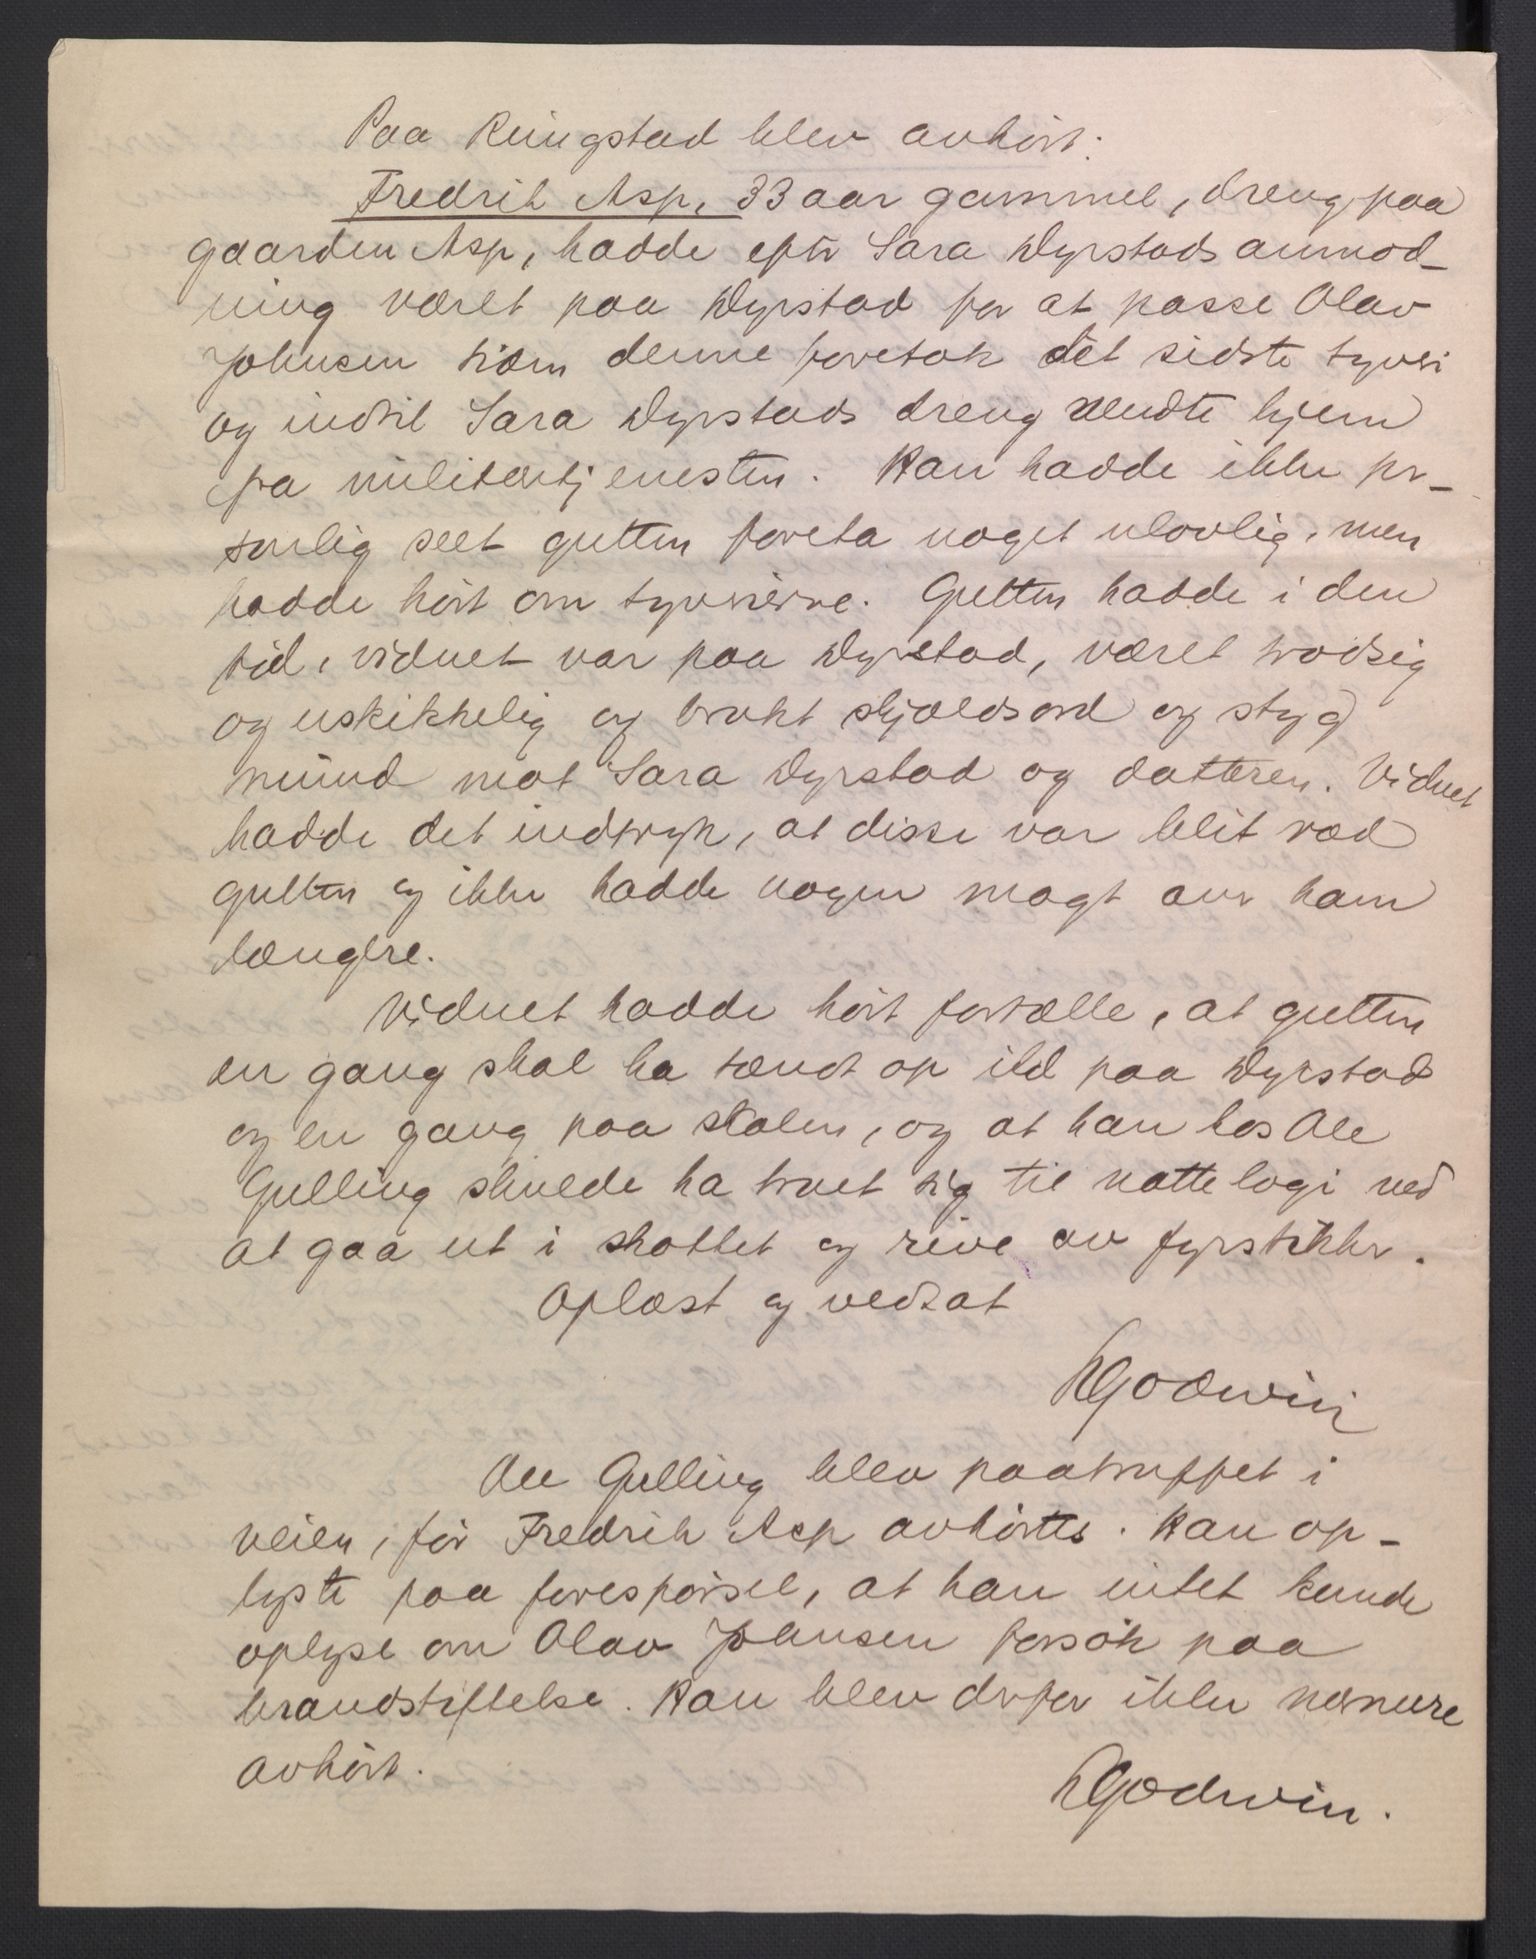 Paa Ringstad blev avhørt:
Fredrik Asp, 33 aar gammel, dreng paa
gaarden Asp, hadde efter Sara Dyrstads anmod-
ning været paa Dyrstad for at passe Olav
Johnsen siden denne foretok det sidste tyveri
og indtil Sara Dyrstads dreng vendte hjem
fra militærtjenesten. Han hadde ikke per-
sonlig seet gutten foreta noget ulovlig, men
hadde hørt om tyverierne. Gutten hadde i den
tid, vidnet var paa Dyrstad, været trodsig
og uskikkelig og brukt skjældsord og styg
mund mot Sara Dyrstad og datteren. Vidnet
hadde det indtryk, at disse var blit ræd
gutten og ikke hadde nogen magt over ham
længere.
Vidnet hadde hørt fortælle, at gutten
en gang skal ha tændt op ild paa Dyrstad
og en gang paa skolen, og at han hos Ole
Gulling skulde ha truet sig til nattelogi ved
at gaa ut i skottet og rive av fyrstikker.
Oplæst og vedtat
HGodwin
Ole Gulling blev paatruffet i
veien, før Fredrik Asp avhørtes. Han op-
lyste paa forespørsel, at han intet kunde
oplyse om Olav Johnsen forsøk paa
brandstiftelse. Han blev derfor ikke nærmere
avhørt.
HGodwin.